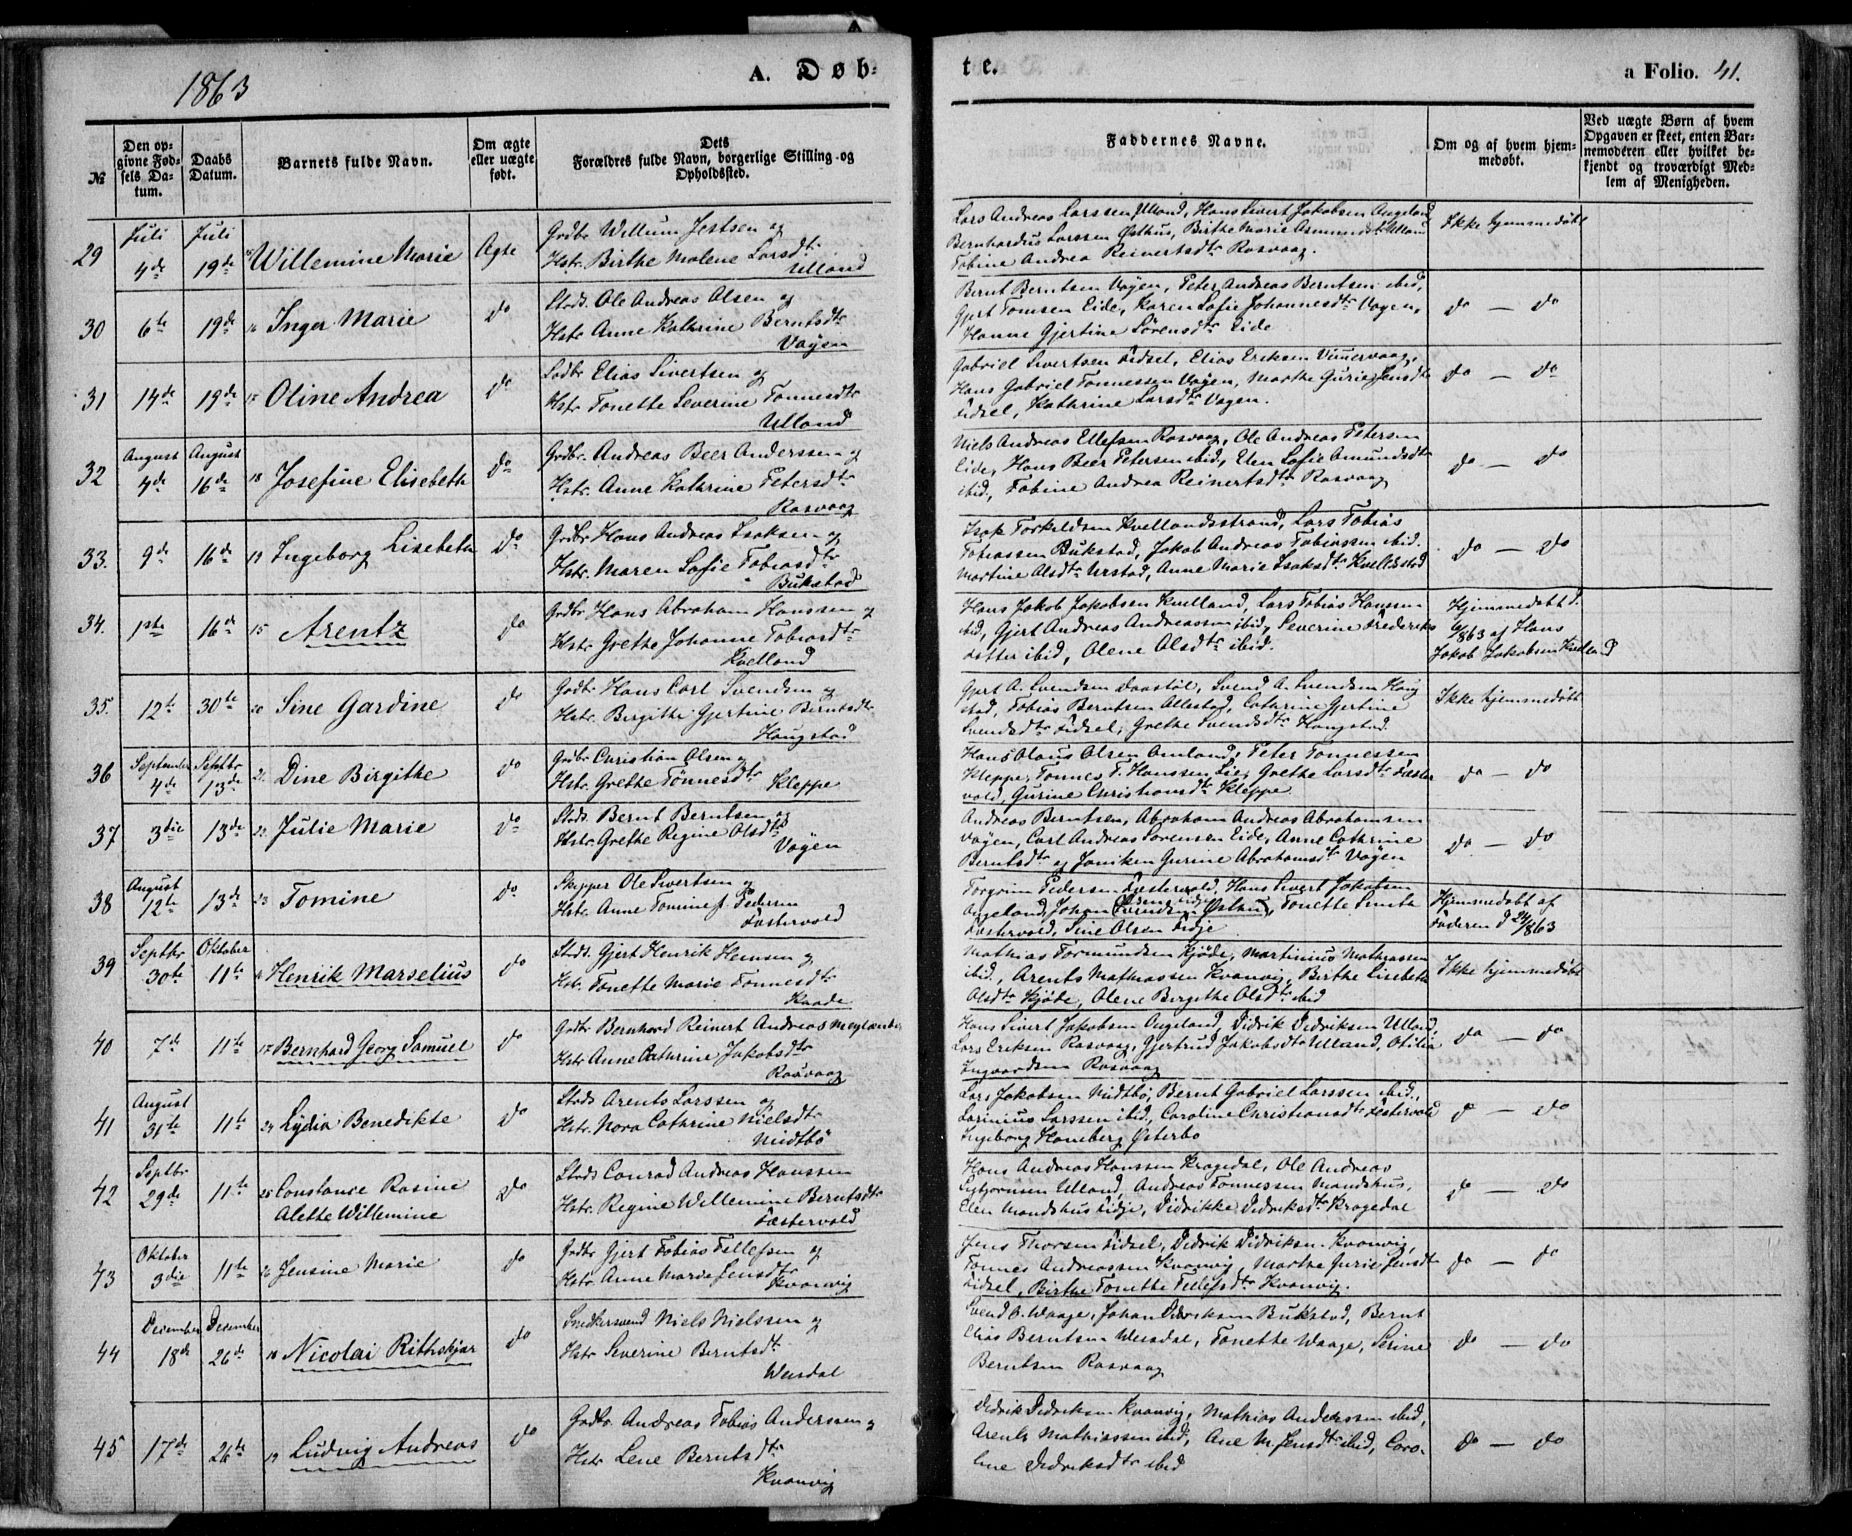 1863
A. Døb-
te.
a Folio. 41.
№
Den op-
givne Fød-
sels Da-
tum.
Daabs
Datum.
Barnets fulde Navn.
Om ægte
eller uægte
født.
Dets
Forældres fulde Navn, borgerlige Stilling og
Opholdssted.
Faddernes Navne.
Om og af hvem hjem-
medøbt.
Ved uægte Børn af hvem
Opgaven er skeet, enten Bar-
nemoderen eller hvilket be-
kjendt og troværdigt Med-
lem af Menigheden.
29
Juli
4de
Juli
19de
Willemine Marie
Ægte
Grdbr. Willum Jestsen og
Hstr. Birthe Malene Larsdtr
Ulland
Lars Andreas Larssen Ulland, Hans Sivert Jakobsen Augeland
Bernhardus Larssen Østhus, Birthe Marie Asmundsdtr Ulland
Tobine Andrea Reinertsdtr Rasvaag.
Ikke hjemmedøbt
30
6te
19de
16 Inger Marie
do
Strds. Ole Andreas Olsen og
Hstr Anne Kathrine Berntsdtr
Vågen
Bernt Berntsen Vågen, Peter Andreas Berntsen ibid,
Gjert Tomsen Eide, Karen Sofie Johannesdtr Vagen,
Hanne Gjertine Sörensdtr Eide
do — do
31
14de
19de
15 Oline Andrea
do
Elias Sivertsen og
Hstr Tonette Severine Tønnesdtr
Ulland
Gabriel Sivertsen Fidsel, Elias Eriksen
Hans Gabriel Tønnessen Vågen, Marthe Gurie Jensdtr
Fidsel, Kathrine Larsdtr Vagen.
do — do
32
August
4de
August
16de
18 Josefine Elisebeth
do
Grdbr. Andreas Beer Anderssen og
Hstr. Anne Kathrine Petersdtr
Rasvaag
Niels Andreas Ellefsen Rasvaag, Ole Andreas Petersen
Eide, Hans Beer Petersen ibid, Elen Sofie Amundsdtr
ibid, Tobine Andrea Reinertsdtr Rasvaag
do — do
33.
9de
16de
19 Ingeborg Lisebeth
do
Grdbr Hans Andreas Isaksen og
Hstr. Maren Sofie Tobiasdtr
Bukstad
Isak Torkildsen Kvellandsstrand, Lars Tobias
Tobiassen Bukstad, Jakob Andreas Tobiassen ibid.
Martine Olsdtr Urstad, Anne Marie Isaksdtr
do — do
34.
1ste
16de
15 Arentz
do
Grdbr Hans Abraham Hanssen og
Hstr Grethe Johanne Tobiasdtr
Kvelland
Hans Jakob Jakobsen Kvelland, Lars Tobias Hanssen
ibid, Gjert Andreas Andreassen ibid, Severine Frederiks
datter ibid, Olene Olsdtr ibid.
Hjemmedøbt d.
/863 af Hans
Jakob Jakobsen Kvelland
35.
12te
30te
20 Sine Gardine
do
Grdbr Hans Carl Svendsen og
Hstr. Birgithe Gjertine Berntsdtr
Haugstad
Gjert A. Svendsen Daastöl, Svend A. Svendsen Haug
stad, Tobias Berntsen Allestad, Cathrine Gjertine
Svendsdtr Fidsel, Grethe Svendsdtr Haugstad.
Ikke hjemmedøbt
36
September
4de
Septbr
13de
21 Dine Birgithe
do
Grdbr Christian Olsen og
Hstr. Grethe Tönnesdtr
Kleppe
Hans Olaus Olsen Omland, Peter Tonnessen
Kleppe, Tønnes T. Hanssen Lie, Grethe Larsdtr Faster
vold, Gurine Christiansdtr Kleppe
do — do
37
3die
13de
22 Julie Marie
do
Strds. Bernt Berntsen og
Hstr. Grethe Regine Olsdtr
Vågen
Andreas Berntsen, Abraham Andreas Abrahamsen
Vågen, Carl Andreas Sørensen Eide, Anne Cathrine
Berntsdtr og Janiken Gurine Abrahamsdtr Vågen
do — do
38
August
12te
13de
23 Tomine
do
Skipper Ole Sivertsen og
Hstr. Anne Tomine f. Pedersen
Fastervold
Torgrim Pedersen Fastervold, Hans Sivert Jakobsen
Augeland, Johan Svendsen Østhus, Tonette Smith
Fastervold, Sine Olsen Fidje
Hjemmedøbt af
Faderen d 24/863
39
Septbr
30te
Oktober
11te
16 Henrik Marselius
do
Strds. Gjert Henrik Hemsen og
Hstr. Tonette Marie Tønnesdtr
Kaade
Mathias Tormundsen Kjöde, Martinius Mathiassen
ibid., Arents Mathiassen Kvanvig, Birthe Lisebeth
Olsdtr Kjöde, Olene Birgithe Olsdtr ibid
Ikke hjemmedøbt
40
7de
11te
17 Bernhard Georg Samuel
do
Grdbr Bernhard Reinert Andreas Meglander
Hstr. Anne Cathrine Jakobsdtr
Rasvaag
Hans Sivert Jakobsen Augeland, Didrik Didriksen Ulland,
Lars Eriksen Rasvaag, Gjertrud Jakobsdtr Ulland, Otilia
Ingvardsen Rasvaag
do — do
41
August
31te
11te
24 Lydia Benedikte
do
Strds Arents Larssen og
Hstr. Nora Cathrine Nielsdtr
Midtbö
Lars Jakobsen Midtbö, Bernt Gabriel Larssen ibid.,
Larinius Larssen ibid, Caroline Christiansdtr Fastervold
Ingeborg Haneberg Østerbo
do — do
42
Septbr
29de
11te
25 Constance Rosine
Alette Willemine
do
Strds Conrad Andreas Hanssen
Hstr. Regine Willemine Berntsdtr
Fastervold
Hans Andreas Hanssen Kragedal, Ole Andreas
Ulland, Andreas Tønnessen Mandshus,
Elen Mandshus Fidje, Didrikke Didriksdtr Kragedal
do — do
43
Oktober
3die
11te
26 Jensine Marie
do
Grdbr Gjert Tobias Tellefsen og
Hstr Anne Marie Jensdtr
Kvanvig
Jens Thorsen Fidsel, Didrik Didriksen Kvanvig,
Tönnes Andreassen Kvanvig, Marthe Gurie Jensdtr
Fidsel, Birthe Tonette Tellefsdtr Kvanvig.
do — do
44
December
18de
December
26de
18 Nicolai Rithskjar
do
Snedkersvend Niels Nielssen og
Hstr Severine Berntsdtr
Weisdal
Svend O. Waage, Johan Didriksen Bukstad, Bernt
Elias Berntsen Weisdal, Tonette Waage, Serine
Berntsen Rasvaag
do — do
45
17de
26de
19 Ludvig Andreas
do
Grdbr. Andreas Tobias Anderssen og
Hstr Lene Berntsdtr
Kvanvig
Didrik Didriksen Kvanvig, Mathias Anderssen ibid,
Arents Mathiassen ibid, Ane M. Jensdtr ibid, Caro-
line Didriksdtr ibid
do — do